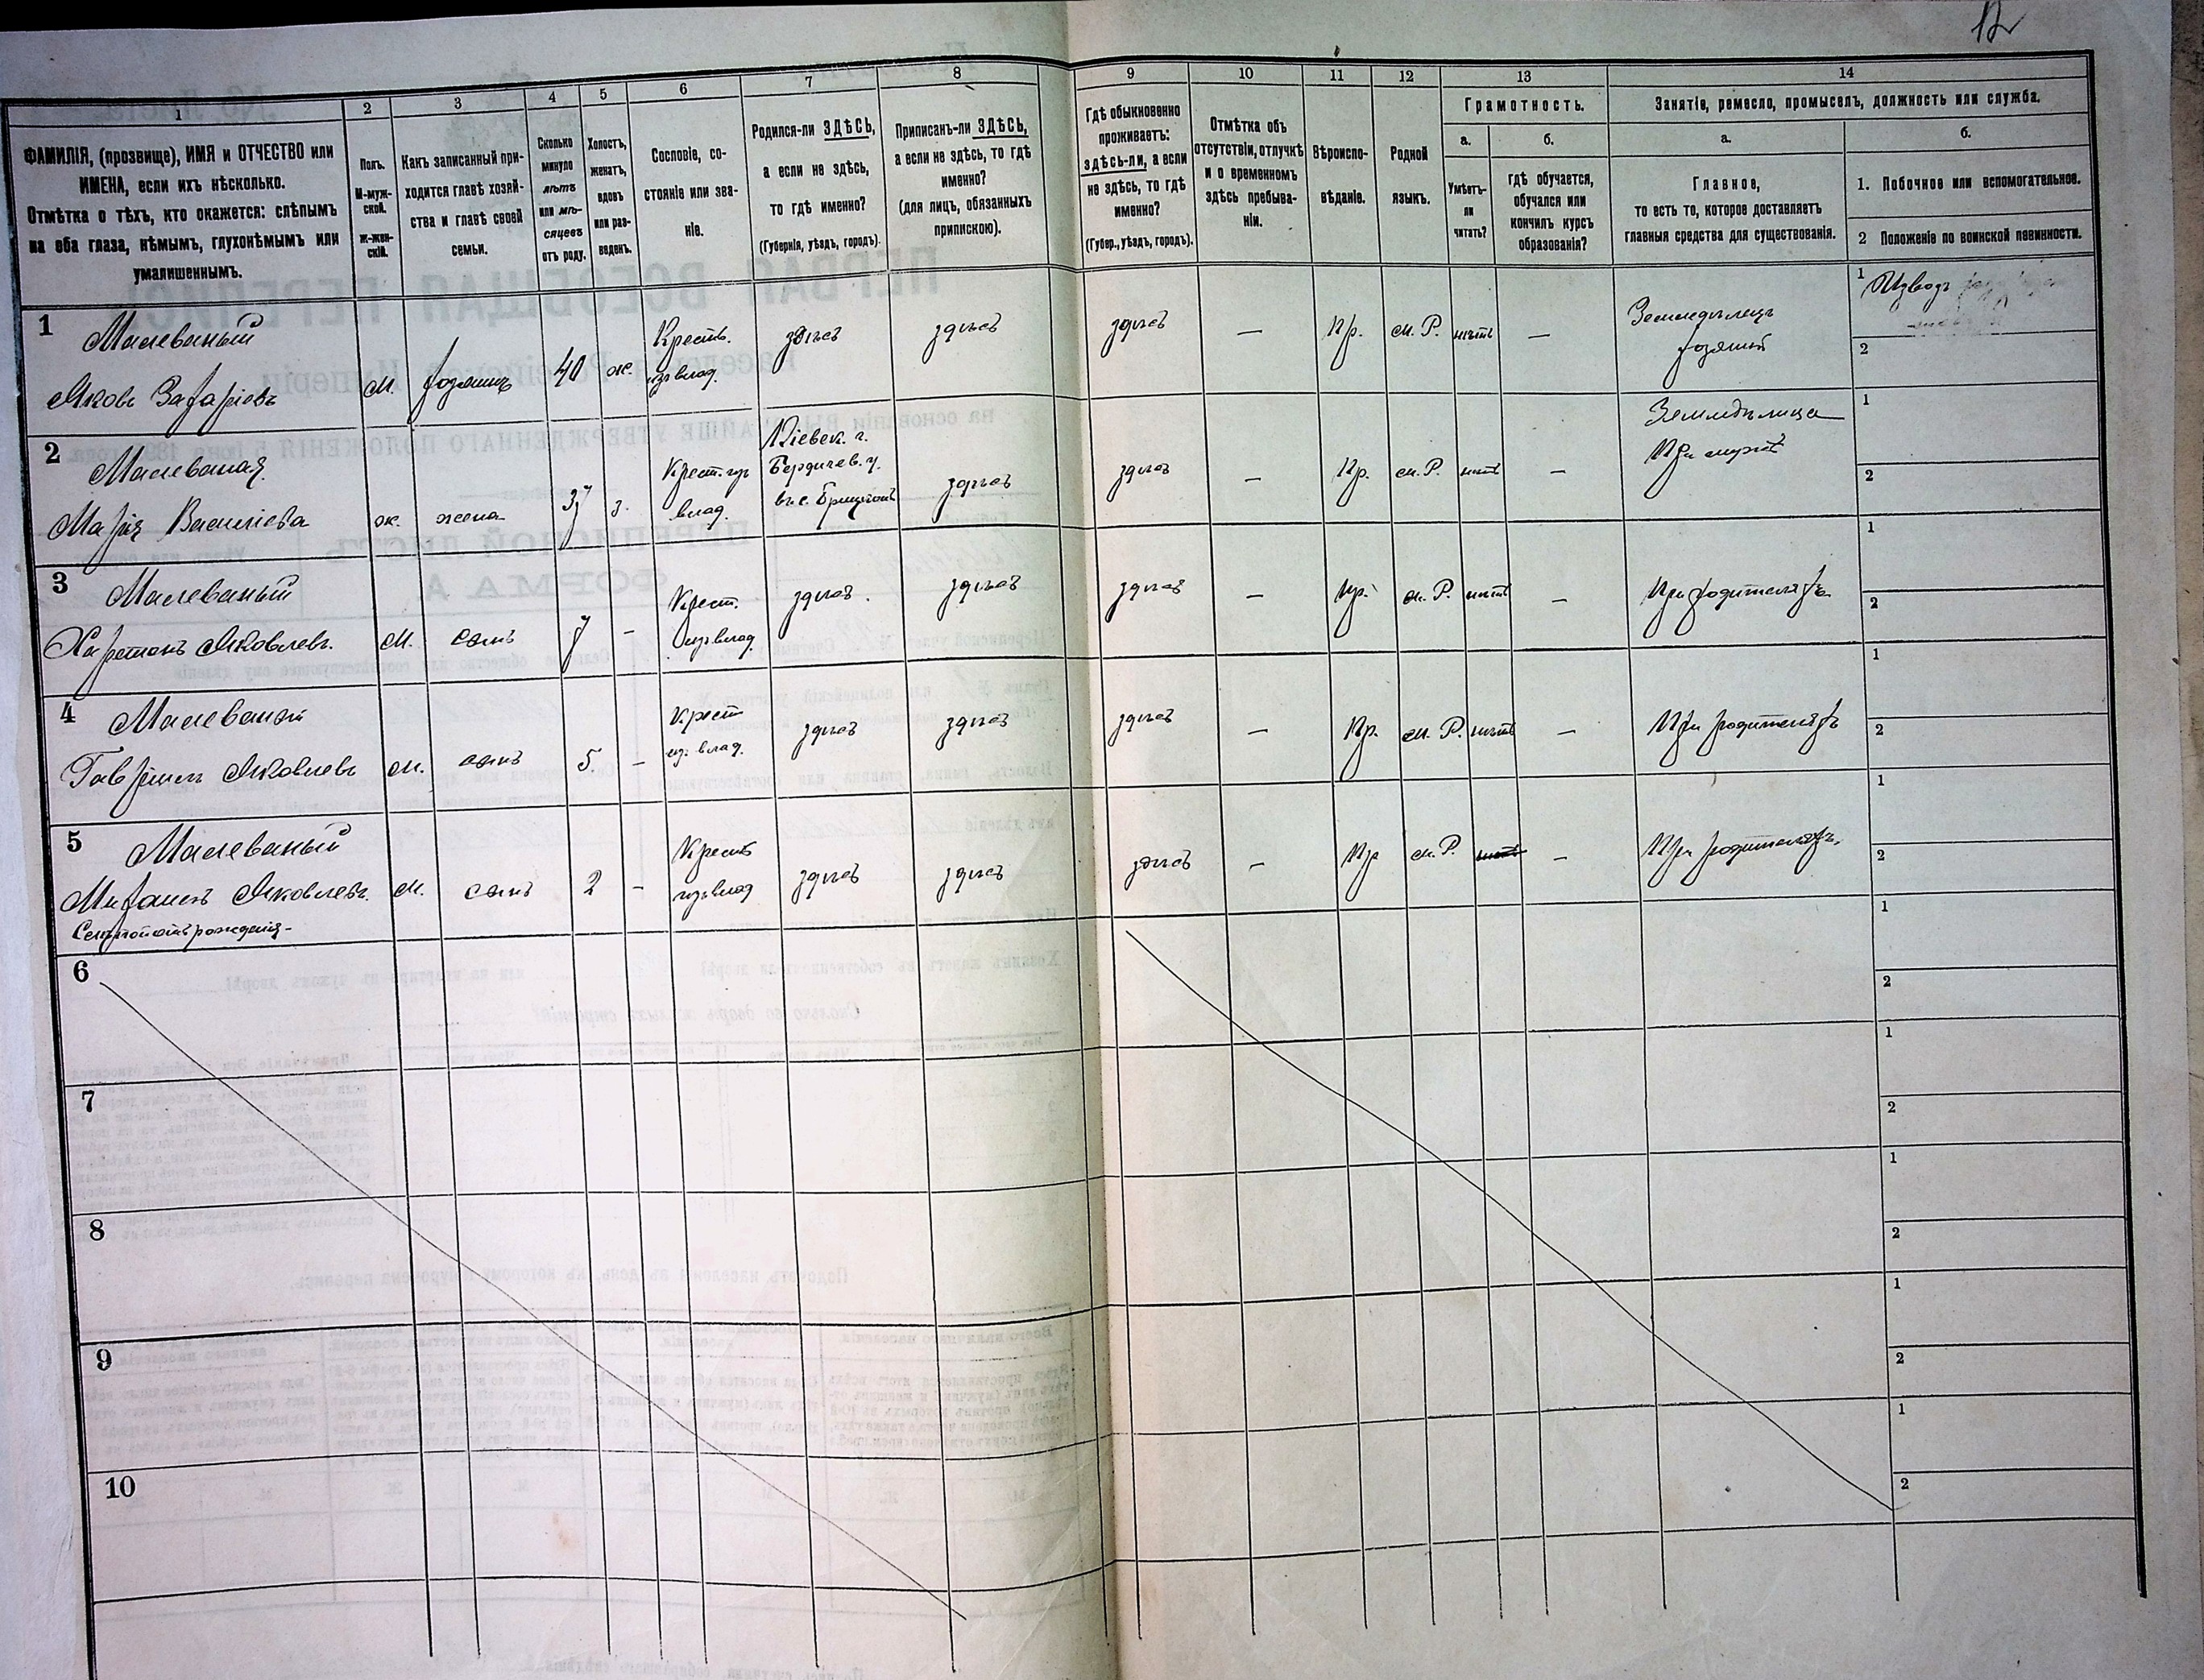 12
1
2
3
4
5
6
7
8
9
10
11
12
13
14
ФАМИЛІЯ, (прозвище), ИМЯ и ОТЧЕСТВО или
ИМЕНА, если ихъ нѣсколько.
Отмѣтка о тѣхъ, кто окажется: слѣпымъ
на оба глаза, нѣмымъ, глухонѣмымъ или
умалишеннымъ.
Полъ.
М-муж-
ской.
Ж-жен-
скій.
Какъ записанный при-
ходится главѣ хозяй-
ства и главѣ своей
семьи.
Сколько
минуло
лѣтъ
или мѣ-
сяцевъ
отъ роду.
Холостъ,
женатъ,
вдовъ
или раз-
веденъ.
Сословіе, со-
стояніе или зва-
ніе.
Родился-ли ЗДѢСЬ,
а если не здѣсь,
то гдѣ именно?
(Губернія, уѣздъ, городъ).
Приписанъ-ли ЗДѢСЬ,
а если не здѣсь, то гдѣ
именно?
(для лицъ, обязанныхъ
припискою).
Гдѣ обыкновенно
проживаетъ:
здѣсь-ли, а если
не здѣсь, то гдѣ
именно?
(Губер., уѣздъ, городъ).
Отмѣтка объ
отсутствіи, отлучкѣ
и о временномъ
здѣсь пребыва-
ніи.
Вѣроиспо-
вѣданіе.
Родной
языкъ.
Грамотность.
а.
б.
Умѣетъ-
ли
читать?
гдѣ обучается,
обучался или
кончилъ курсъ
образованія?
Занятіе, ремесло, промыселъ, должность или служба.
а.
б.
Главное,
то есть то, которое доставляетъ
главныя средства для существованія.
1. Побочное или вспомогательное.
2 Положеніе по воинской повинности.
1
Малеваный
Яковъ Захаріевъ
м.
хозяинъ
40
ж.
Крестьь.
изъ влад.
здѣсь
здѣсь
здѣсь
—
Пр.
м. Р.
нѣтъ
—
Земледѣлецъ
хозяинъ
1 Извозъ
2
2
Малеваная
Марія Васильева
ж.
жена
37
з.
Крест. изъ
влад.
Кіевск. г.
Бердичев. у.
здѣсь
здѣсь
—
Пр.
м. Р.
нѣтъ
—
Земледѣлица
При мужѣ
1
2
3
Малеваный
Харитонъ Яковлевъ.
м.
сынъ
7
-
Крест.
изъ влад.
здѣсь.
здѣсь
здѣсь
—
Пр.
м. Р.
нѣтъ
—
При родителяхъ
1
2
4
Малеваный
Гавріилъ Яковлевъ
м.
сынъ
5.
-
Крест
из. влад.
здѣсь
здѣсь
здѣсь
—
Пр.
м. Р.
нѣтъ
—
При родителяхъ
1
2
5
Малеваный
Михаилъ Яковлевъ.
м.
сынъ
2
-
Крест
изъ влад
здѣсь
здѣсь
здѣсь
—
Пр
м. Р.
нѣтъ
—
При родителяхъ.
1
2
6
1
2
7
1
2
8
1
2
9
1
2
10
1
2